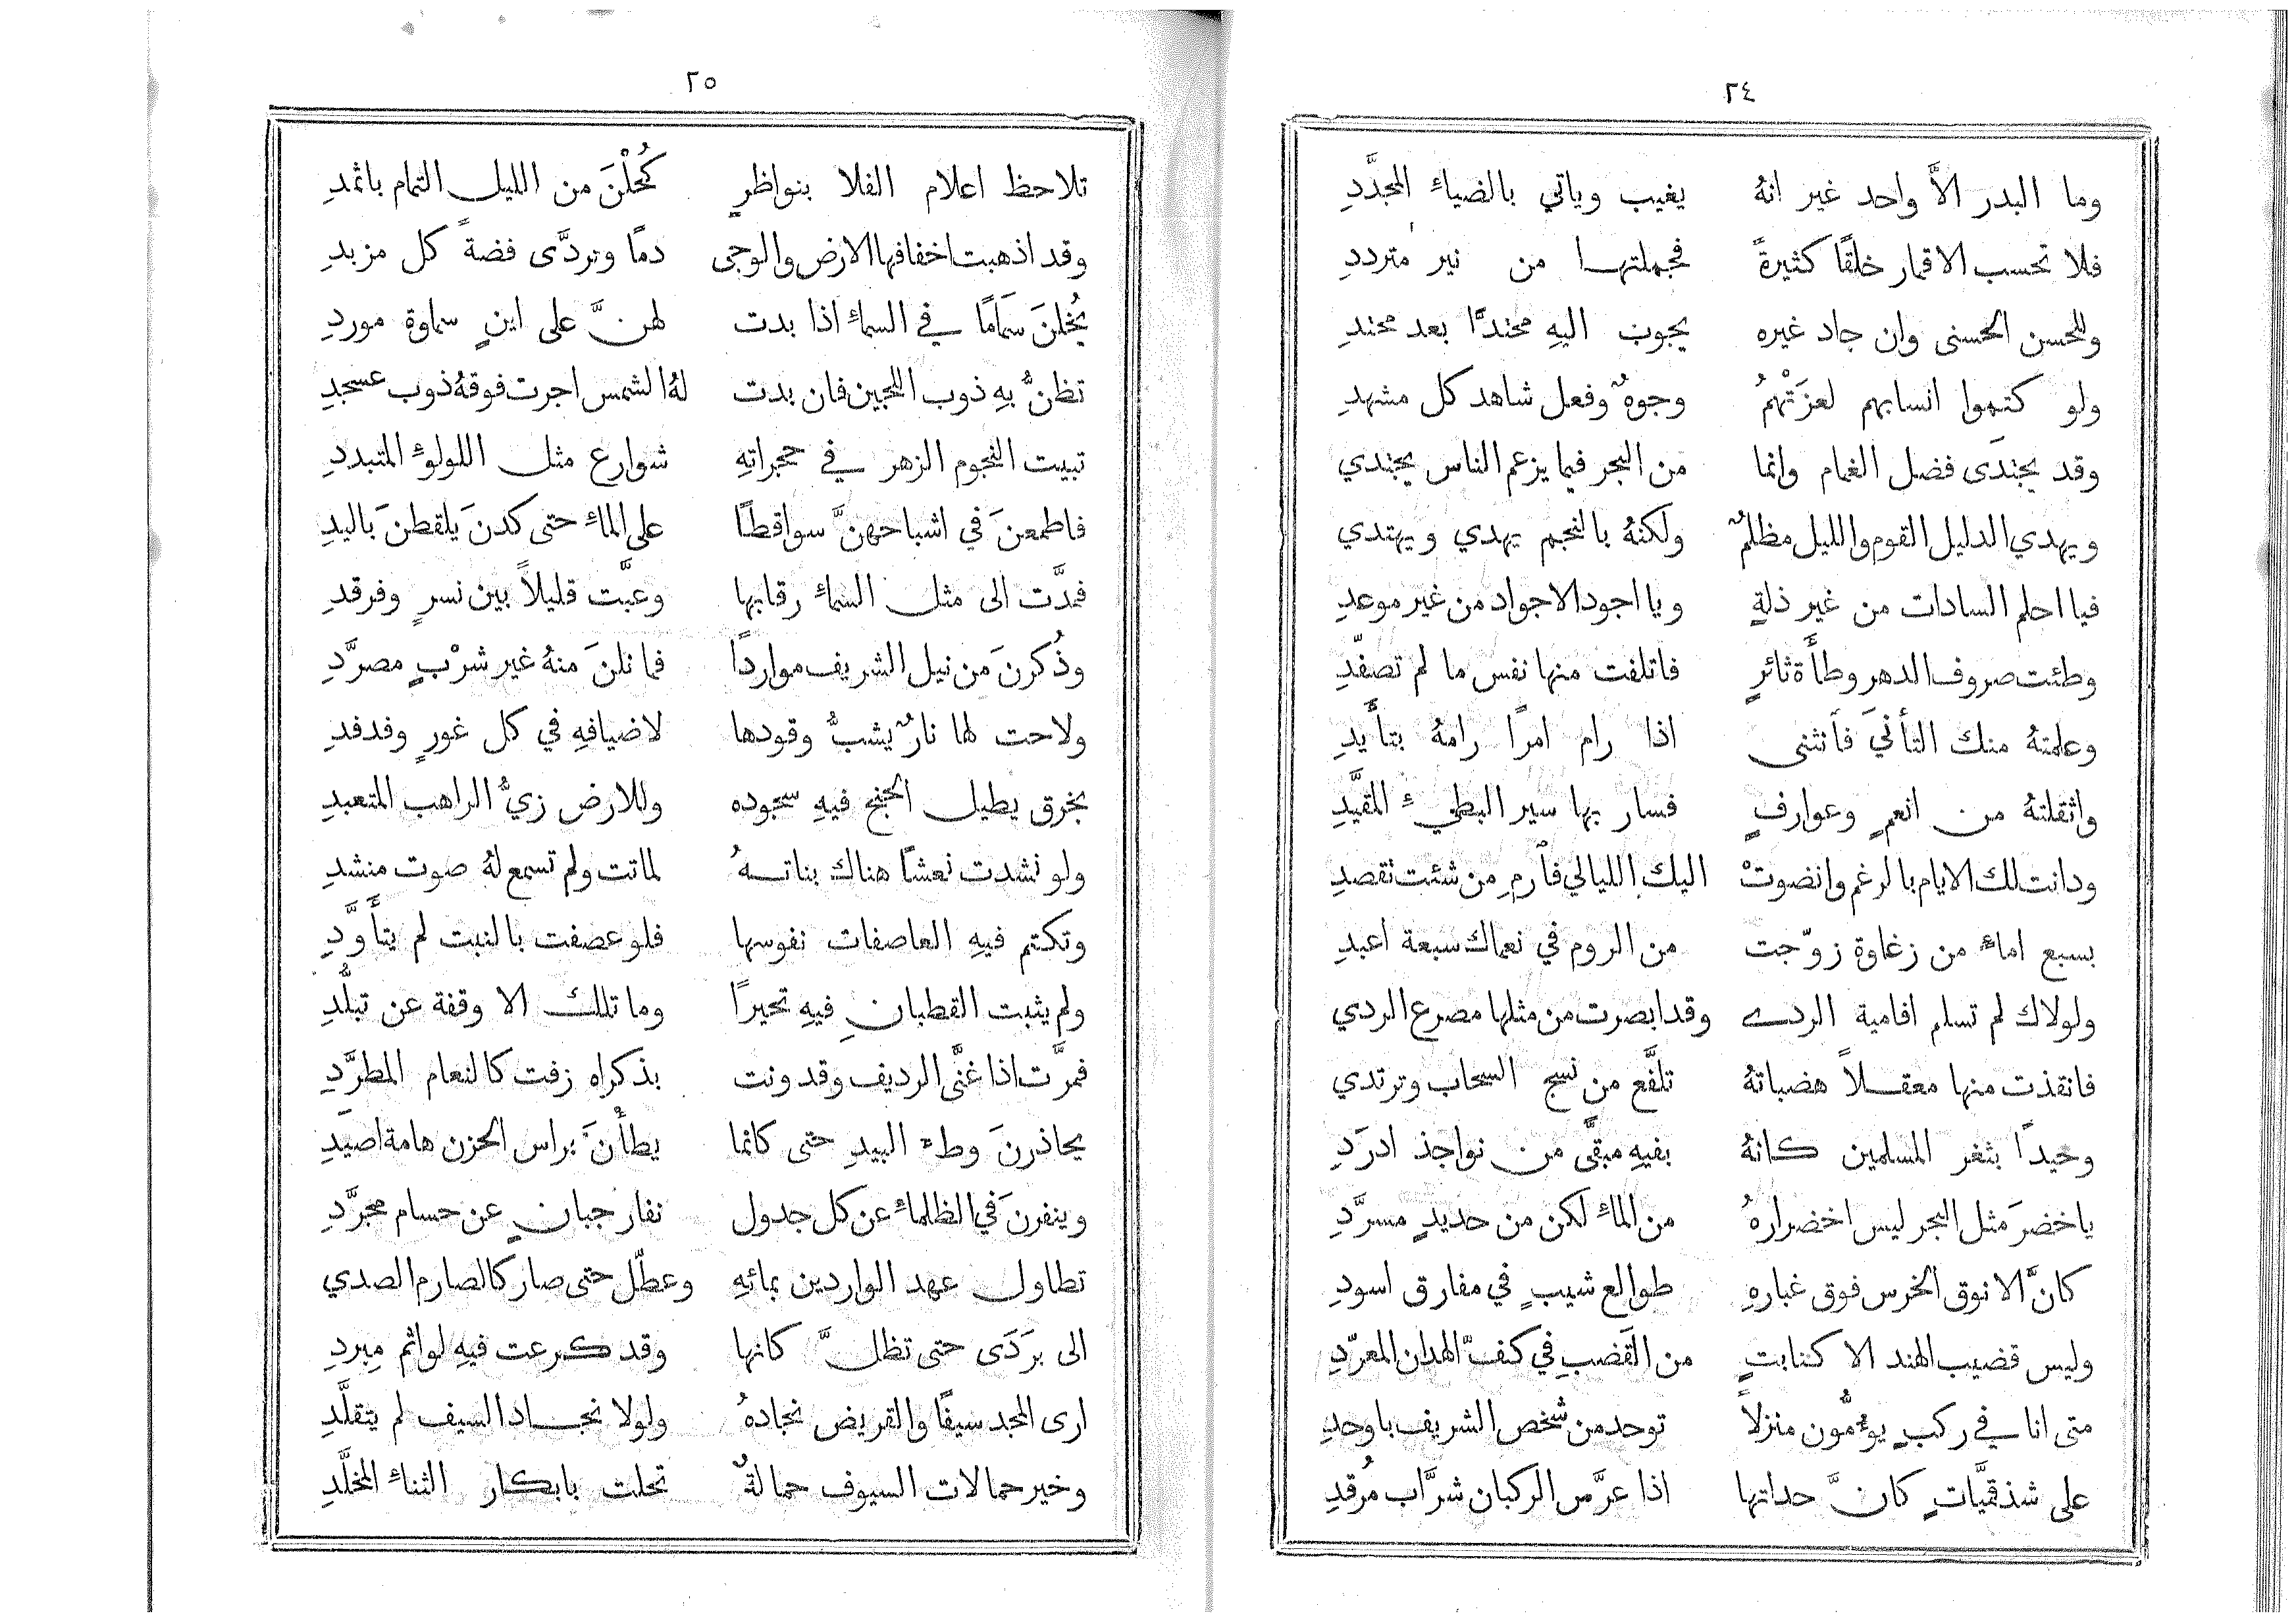 ٢٤
وما البدر الاَّ واحد غير انهُ يغيب وياتي بالضياءِ المجدَّدِ
فلا تحسب الاقمار خلقًا كثيرةً فجملتها من نير مترددِ
وللحسن الحسنى وان جاد غيره يجوب اليهِ محتدًا بعد محتدِ
ولو كتموا انسابهم لعزَتْهُمُ وجوهٌ وفعل شاهد كل مشهدِ
وقد يجتدَى فضل الغمام وانما من البحر فيما يزعم الناس يجتدي
ويهدي الدليل القوم والليل مظلمٌ ولكنهُ بالنجم يهدي ويهتدي
فيا احلم السادات من غير ذلةٍ ويا اجود الاجواد من غير موعدِ
وطئت صروف الدهر وطأَة ثائرٍ فاتلفت منها نفس ما لم تصفّدِ
وعلمتهُ منك التأنيَ فأنثنى اذا رام امرًا رامهُ بتأَيدِ
واثقلتهُ من انعمٍ وعوارفٍ فسار بها سير البطيءِ المقيَّدِ
ودانت لك الايام بالرغم وانضوتْ اليك الليالي فأرمِ من شئت تقصدِ
بسبع اماءٍ من زغاوة زوّجت من الروم في نعماك سبعة اعبدِ
ولولاك لم تسلم افامية الردے وقد ابصرت من مثلها مصرع الردي
فانقذت منها معقلاً هضباتهُ تلفَّع من نسج السحاب وترتدي
وحيدًا بثغر المسلمين كانهُ بفيهِ مبقىً من نواجذ ادرَدِ
باخضرَ مثل البحر ليس اخضرارهُ من الماءِ لكن من حديدٍ مسرَّدِ
كانَّ الانوق الخرس فوق غبارهِ طوالع شيبٍ في مفارق اسودِ
وليس قضيب الهند الا كنابتٍ من القَضبِ في كفّ الهدان المعرّدِ
متى انا في ركبٍ يوءمُّون منزلاً توحد من شخص الشريف باوحدِ
على شذقميَّاتٍ كانَّ حداتها اذا عرَّس الركبان شرَّاب مُرقدِ
٢٥
تلاحظ اعلام الفلا بنواظرٍ كُحلْنَ من الليل التمام باثمدِ
وقد اذهبت اخفافها الارض والوجى دمًا وتردَّى فضةً كل مزبدِ
يُخلنَ سمَامًا في السماءِ اذا بدت لهنَّ على اينٍ سماوة موردِ
تظنُّ بهِ ذوب اللجين فان بدت لهُ الشمس اجرت فوقهُ ذوب عسجدِ
تبيت النجوم الزهر في حجراتهِ شوارع مثل اللولوءِ المتبددِ
فاطمعنَ في اشباحهنَّ سواقطًا على الماءِ حتى كدنَ يلقطنَ باليدِ
فمدَّت الى مثل السماءِ رقابها وعبَّت قليلاً بين نسرٍ وفرقدِ
وذُكرنَ من نيل الشريف مواردًا فما نلنَ منهُ غير شرْبٍ مصرَّدِ
ولاحت لها نارٌ يشبُّ وقودها لاضيافهِ في كل غورٍ وفدفدِ
بخرق يطيل الجنح فيهِ سجوده وللارض زيُّ الراهب المتعبدِ
ولو نشدت نعشًا هناك بناتهُ لماتت ولم تسمع لهُ صوت منشدِ
وتكتم فيهِ العاصفات نفوسها فلو عصفت بالنبت لم يتأَوَّدِ
ولم يثبت القطبانِ فيهِ تحيرًا وما تلك الا وقفة عن تبلُّدِ
فمرَّت اذا غنَّى الرديف وقد ونت بذكراه زفت كالنعام المطرَّدِ
يحاذرنَ وطء البيدِ حتى كانما يطأْنَ براس الحزن هامة اصيَدِ
وينفرنَ في الظلماءِ عن كل جدول نفار جبانٍ عن حسام مجرَّدِ
تطاول عهد الواردين بمائهِ وعطّل حتى صار كالصارم الصدي
الى برَدَى حتى تظلَّ كانها وقد كرعت فيهِ لواثم مبردِ
ارى المجد سيفًا والقريض نجادهُ ولولا نجاد السيف لم يتقلَّدِ
وخير حمالات السيوف حمالةٌ تحلت بابكار الثناءِ المخلَّدِ